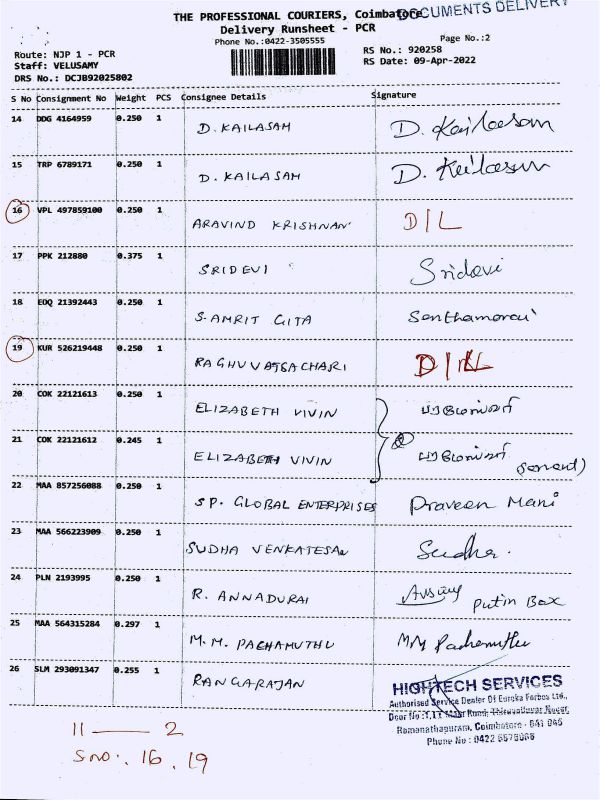 THE PROFESSIONAL COURIERS, Coimbatore
DOCUMENTS DELIVERY
Delivery Runsheet - PCR
Phone No.:0422-3505555
Page No.:2
Route: NJP 1 - PCR
RS No.: 920258
Staff: VELUSAMY
RS Date: 09-Apr-2022
DRS No.: DCJB92025802
S No Consignment No Weight PCS Consignee Details Signature
14 DDG 4164959 0.250 1 D. KAILASAM D. Kailaasam
15 TRP 6789171 0.250 1 D. KAILASAM D. Kailasam
16 VPL 497859100 0.250 1 ARAVIND KRISHNAN D/L
17 PPK 212880 0.375 1 SRIDEVI Sridevi
18 EDQ 21392443 0.250 1 S. AMRIT GITA Senthamarai
19 KUR 526219448 0.250 1 RAGHUVATSACHARI D/L
20 COK 22121613 0.250 1 ELIZABETH VIVIN
21 COK 22121612 0.245 1 ELIZABETH VIVIN
22 MAA 857256088 0.250 1 SP. GLOBAL ENTERPRISES Praveen Mani
23 MAA 566223909 0.250 1 SUDHA VENKATESAN Sudha.
24 PLN 2193995 0.250 1 R. ANNADURAI Put in Box
25 MAA 564315284 0.297 1 M. M. PACHAMUTHU MM Pachamuthu
26 SLM 293091347 0.255 1 RANGARAJAN
HIGHTECH SERVICES
Authorised Service Dealer Of Eureka Forbes Ltd.,
Ramanathapuram, Coimbatore - 641 045
Phone No : 0422
11 — 2
S no. 16, 19